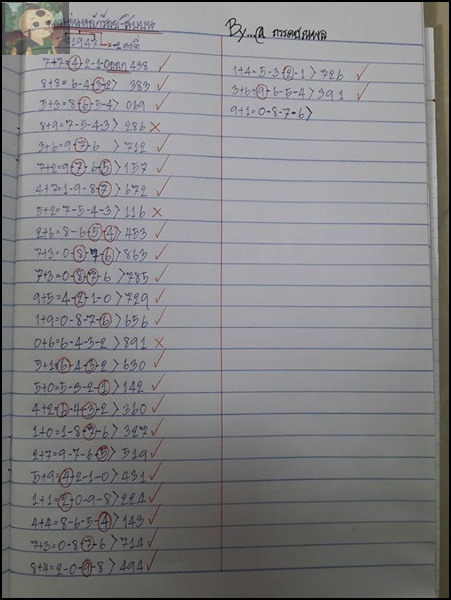 1947
7+7=4-2-1-0ออก 438 ✓
8+8=6-4-3-2> 383 ✓
5+3=8-6-5-4> 069 ✓
8+9=7-5-4-3> 286 ×
3+6=9-7-6 >712 ✓
7+2=9-7-6-5>157 ✓
4+7=1-9-8-7>672 ✓
5+2=7-5-4-3>116 ×
2+6=8-6-5-4>453 ✓
7+3=0-8-7-6>863 ✓
7+3=0-8-7-6 >785 ✓
9+5=4-2-1-0>729 ✓
1+9=0-8-7-6>656 ✓
0+6=6-4-3-2 >891 ×
5+1=6-4-3-2>630 ✓
5+0=5-3-2-1>142 ✓
4+2=6-4-3-2>360 ✓
1+0=1-8-7-6>327 ✓
2+7=9-7-6-5>519 ✓
5+9=4-2-1-0>431 ✓
1+1=2-0-9-8>224 ✓
4+4=8-6-5-4>143 ✓
7+3=0-8-7-6>714 ✓
8+4=2-0-9-8>494 ✓
By...
1+4=5-3-2-1>726 ✓
3+6=9-6-5-4>391 ✓
9+1=0-8-7-6>